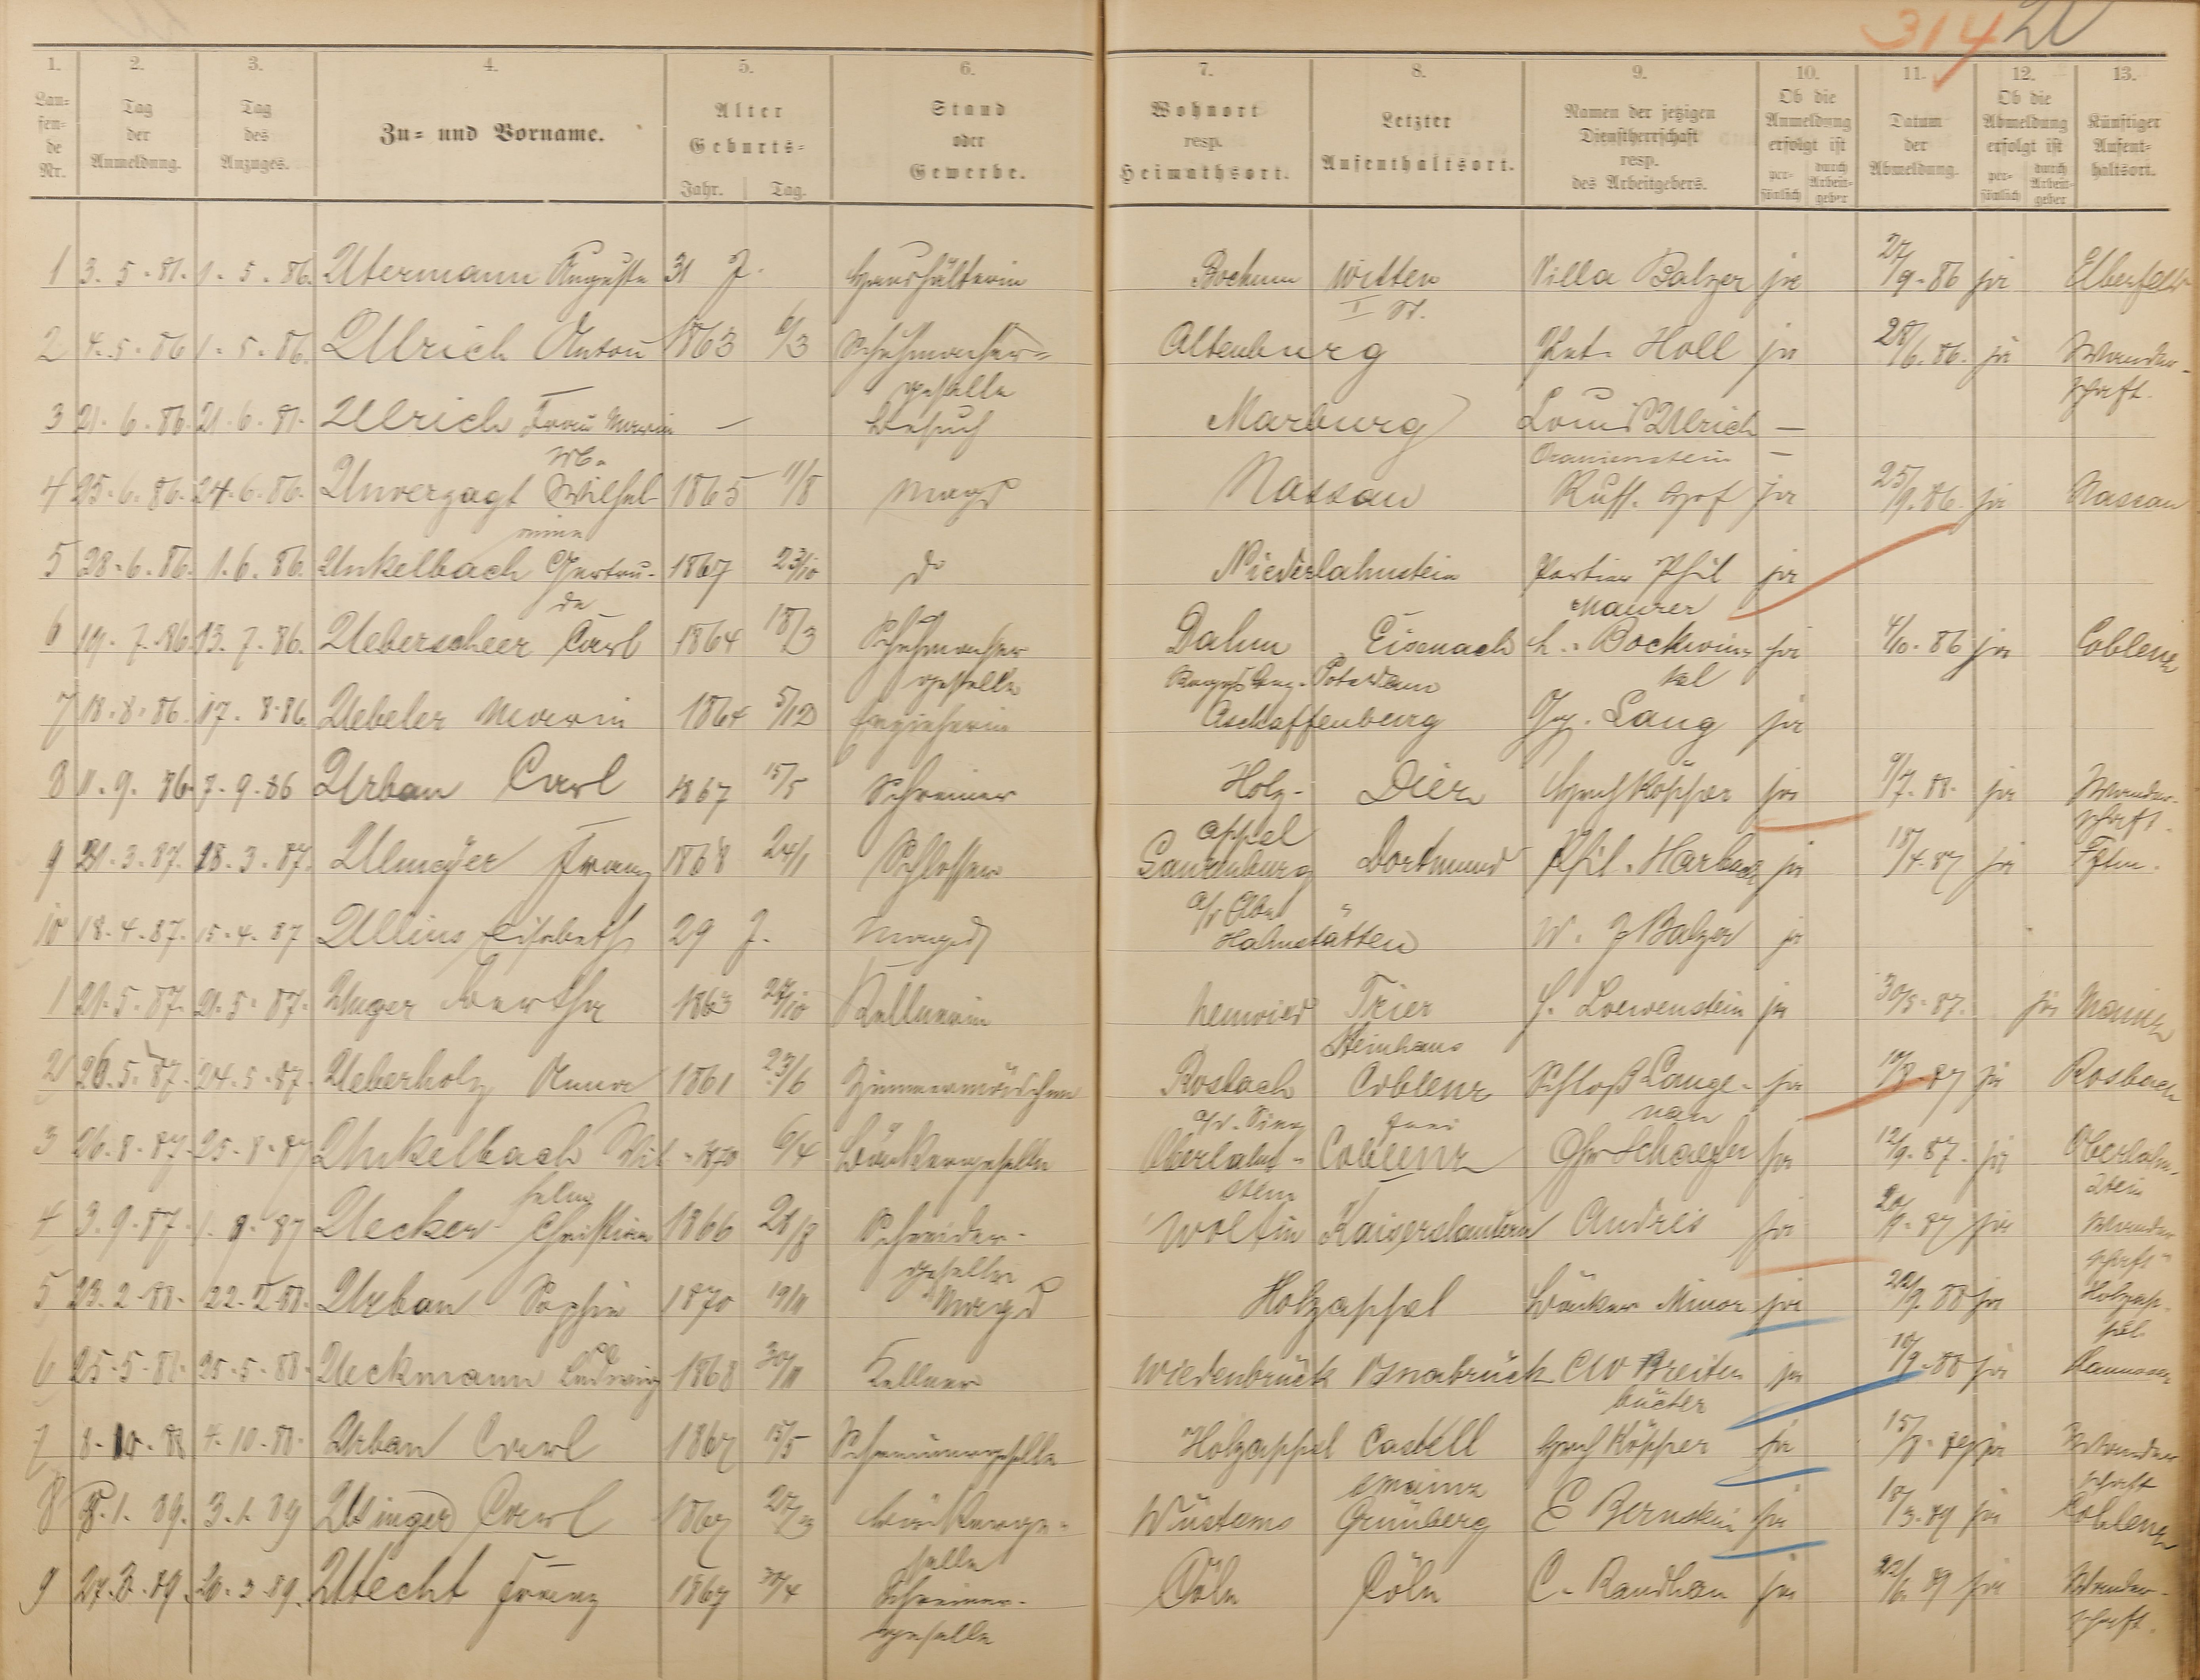 314 U
1. 2. 3. 4. 5. 6. 7. 8. 9. 10. 11. 12. 13.
Lau=fen=de Nr. Tag der Anmeldung. Tag des Anzuges. Zu= und Vorname. Alter Geburts= Jahr. Tag. Stand oder Gewerbe. Wohnort resp. Heimathsort. Letzter Aufenthaltsort. Namen der jetzigen Dienstherrschaft resp. des Arbeitgebers. Ob die Anmeldung erfolgt ist per=sönlich durch Arbeit=geber Datum der Abmeldung. Ob die Abmeldung erfolgt ist per=sönlich durch Arbeit=geber Künftiger Aufent=haltsort.
1 3. 5. 81. 1. 5. 86. Utermann Auguste 31 J. Haushälterin Bochum Witten Villa Balzer ja 27/9. 86 ja Elberfeld
I St.
2 4. 5. 86 1. 5. 86. Ullrich Anton 1863 6/3 Schuhmacher= Altenburg Pet. Holl ja 28/6. 86. ja Wander-
geselle schaft.
3 21. 6. 86. 21. 6. 81. Ullrich Frau Maria — Besuch Marburg Louis Ullrich —
Wb. Oranienstein —
4 25. 6. 86. 24. 6. 86. Unverzagt Wilhel- 1865 11/8 Magd Nassau Russ. Hof ja 25/9. 86. ja Nassau
mine
5 28. 6. 86. 1. 6. 86. Unkelbach Gertru- 1867 23/10 do Niederlahnstein Portier Phil ja
de Maurer
6 19. 7. 86. 13. 7. 86. Ueberscheer Carl 1864 18/3 Schuhmacher Dahm Eisenach h. Bockwin- ja 4/10. 86 ja Coblenz
geselle Potsdam kel
7 18. 8. 86. 17. 8. 86. Uebeler Maria 1864 5/12 Erzieherin Aschaffenburg Lang ja
8 11. 9. 86. 7. 9. 86 Urban Carl 1867 15/5 Schreiner Holz- Diez Köpper ja 9/7. 88. ja Wander-
appel schaft.
9 21. 3. 87. 18. 3. 87. Ulmeyer Franz 1868 24/1 Schlosser Dortmund Phil. Harbach ja 18/4. 87 ja
10 18. 4. 87. 15. 4. 87 Ullius Elisabeth 29 J. Magd Hahnstätten W. J Balzer ja
1 21. 5. 87. 21. 5. 87. Unger Bertha 1863 27/10 Kellnerin Neuwied Trier H. Loewenstein ja 30/5. 87. ja Mainz
Steinhaus
2 26. 5. 87. 24. 5. 87. Ueberholz Anna 1861 23/6 Zimmermädchen Rosbach Coblenz Schloß Lange- ja 10/8. 87 ja Rosbach
a/d. Sieg nau
3 26. 8. 87. 25. 8. 87 Unkelbach Wil- 1870 6/4 Bäckergeselle Oberlahn- Coblenz Chr Schaefer ja 12/9. 87. ja Oberlahn-
helm stein stein
4 3. 9. 87. 1. 9. 87 Uecker Christian 1866 28/8 Schneider- Woltin Kaiserslautern Andreis ja 20/9. 87 ja Wander
geselle schaft
5 23. 2. 88. 22. 2. 88. Urban Sophie 1870 19/11 Magd Holzappel Bäcker Minor ja 22/9. 88 ja Holzap-
pel
6 25. 5. 88. 25. 5. 88. Ueckmann Ludwig 1868 30/11 Kellner Wiedenbrück Osnabrück CW Breiten ja 10/9. 88 ja Hannover
bücher
7 8. 10. 88 4. 10. 88. Urban Carl 1867 15/5 Schreinergeselle Holzappel Castell Köpper ja 15/8. 89 ja Wander
Mainz schaft
8 8. 1. 89. 3. 1. 89 Utinger Carl 1867 Bäckerge- Wüstems Grünberg E Bernstein ja 18/3. 89 ja Coblenz
selle
9 27. 3. 89. 20. 3. 89. Utecht Franz 1867 30/4 Schreiner- Cöln Cöln C. Randhan ja 22/6. 89 ja Wander-
geselle schaft.